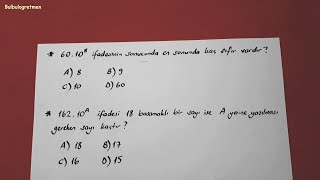 Bulbulogretmen
* 60.10⁸ ifadesinin sonucunda en sonunda kaç sıfır vardır?
A) 8 B) 9
C) 10 D) 60
* 162.10ᴬ ifadesi 18 basamaklı bir sayı ise A yerine yazılması
gereken sayı kaçtır?
A) 18 B) 17
C) 16 D) 15